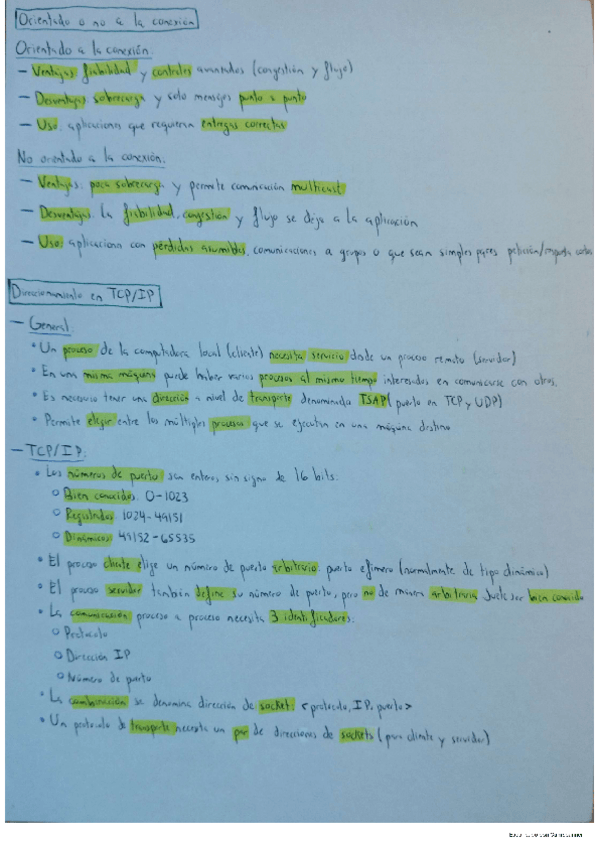 Orientado o no a la conexión
Orientado a la conexión:
— Ventajas: fiabilidad y controles avanzados (congestión y flujo)
— Desventajas: sobrecarga y solo mensajes punto a punto
— Uso: aplicaciones que requieran entregas correctas
No orientado a la conexión:
— Ventajas: poca sobrecarga y permite comunicación multicast
— Desventajas: la fiabilidad, congestión y flujo se deja a la aplicación
— Uso: aplicaciones con pérdidas asumibles, comunicaciones a grupos o que sean simples pares petición/respuesta cortos
Direccionamiento en TCP/IP
— General:
• Un proceso de la computadora local (cliente) necesita servicio desde un proceso remoto (servidor)
• En una misma máquina puede haber varios procesos al mismo tiempo interesados en comunicarse con otros.
• Es necesario tener una dirección a nivel de transporte denominada TSAP (puerto en TCP y UDP)
• Permite elegir entre los múltiples procesos que se ejecutan en una máquina destino
— TCP/IP:
• Los números de puerto son enteros sin signo de 16 bits:
○ Bien conocidos: 0-1023
○ Registrados: 1024-49151
○ Dinámicos: 49152-65535
• El proceso cliente elige un número de puerto arbitrario: puerto efímero (normalmente de tipo dinámico)
• El proceso servidor también define su número de puerto, pero no de manera arbitraria. Suele ser bien conocido
• La comunicación proceso a proceso necesita 3 identificadores:
○ Protocolo
○ Dirección IP
○ Número de puerto
• La combinación se denomina dirección de socket: <protocolo, IP, puerto>
• Un protocolo de transporte necesita un par de direcciones de sockets (para cliente y servidor)